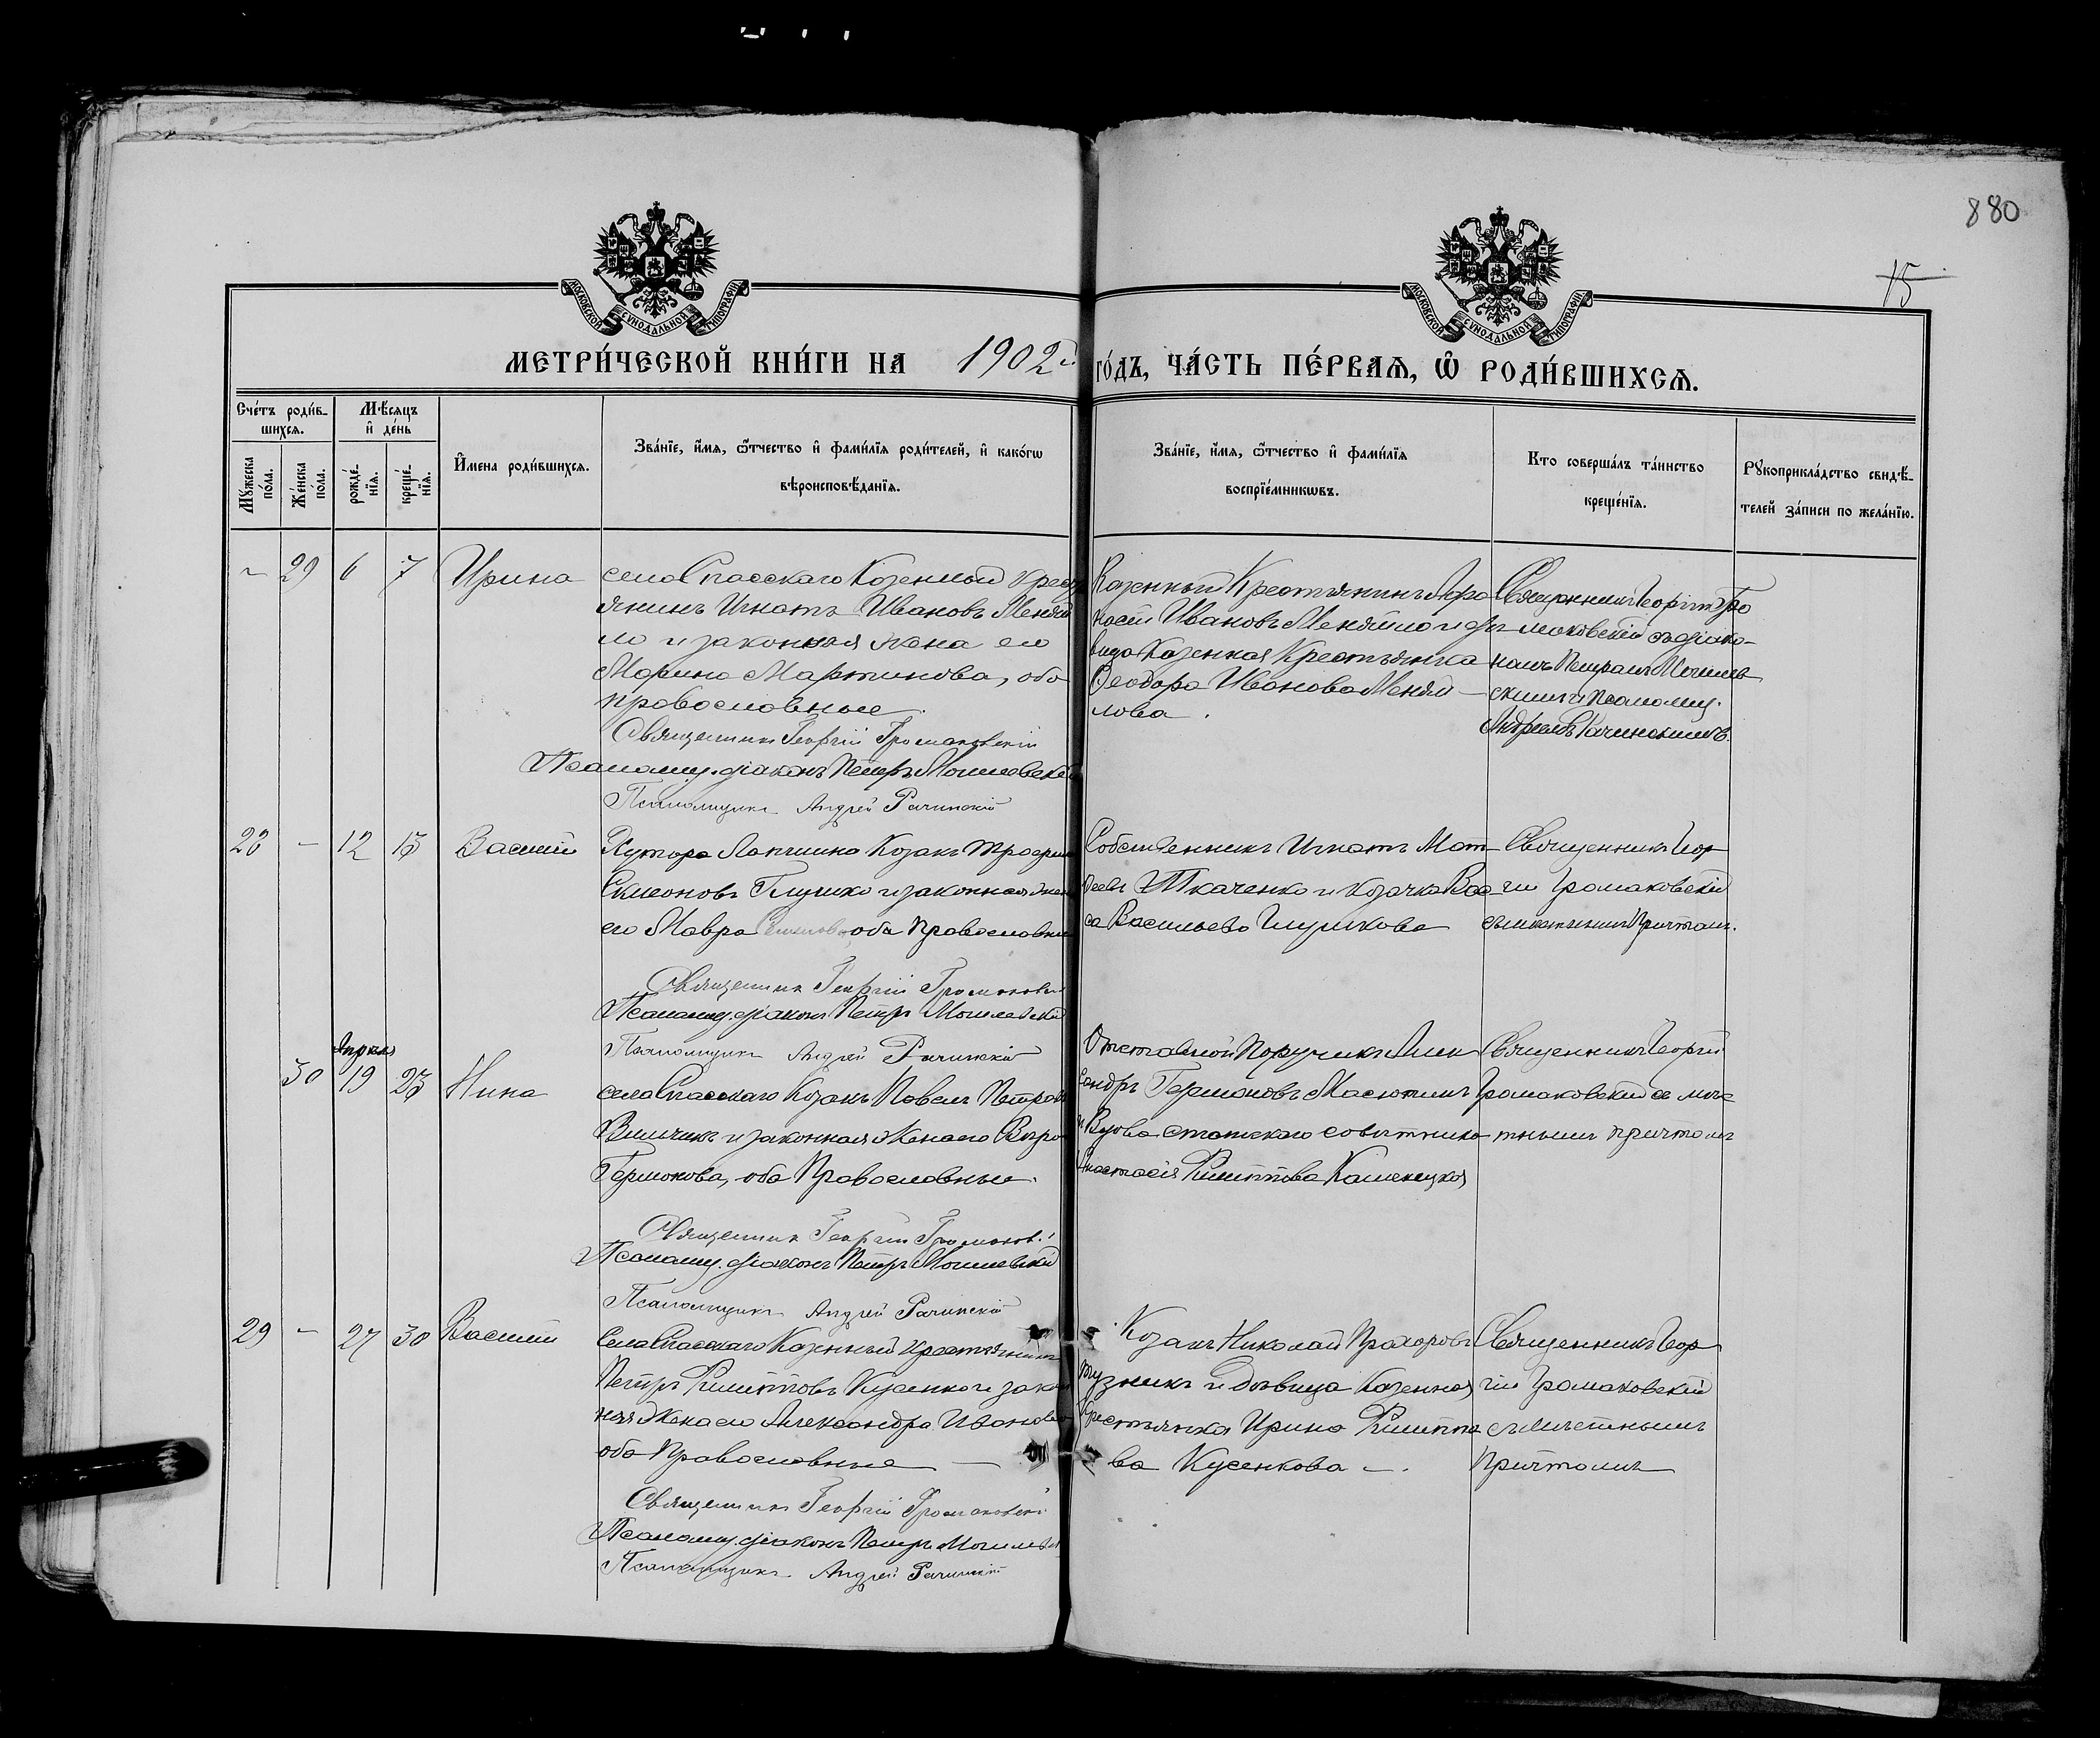 880
15
МОСКОВСКОЙ СѴНОДАЛЬНОЙ ТИПОГРАФІИ
МОСКОВСКОЙ СѴНОДАЛЬНОЙ ТИПОГРАФІИ
МЕТРИ́ЧЕСКОЙ КНИ́ГИ НА 1902 го́дъ, ЧА́СТЬ ПЕ́РВАѦ, Ѡ҆ РОДИ́ВШИХСѦ.
Сче́тъ роди́в-
шихсѧ.
Мѣ́сѧцъ
и҆ де́нь
Мꙋ́жеска по́ла.
Же́нска по́ла.
рожде́нїѧ.
креще́нїѧ.
И҆мена роди́вшихсѧ.
Зва́нїе, и҆́мѧ, ѻ҆́тчество и҆ фами́лїѧ роди́телей, и҆ како́гѡ
вѣроисповѣ́данїѧ.
Зва́нїе, и҆́мѧ, ѻ҆́тчество и҆ фами́лїѧ
воспрїе́мникѡвъ.
Кто соверша́лъ та́инство
креще́нїѧ.
Рꙋкоприкла́дство свидѣ́-
телей за́писи по жела́нїю.
29 6 7 Ирина
села Спасскаго Козенный Крест
янинъ Игнатъ Ивановъ Меняй
ло и законная жена его
Марина Мартинова, оба
православные.
Священникъ Георгій Громаковскій
Псаломщ. діаконъ Петръ Могилевскій
Псаломщикъ Андрей Рачинскій
Козенный Крестьянинъ Афа
насій Ивановъ Меняйло и дѣ
вица Козенная Крестьянка
Ѳеодора Иванова Меняй
лова.
Священникъ Георгій Гро
маковскій съ діако-
номъ Петромъ Могилев
скимъ и Псаломщ.
Андреемъ Рачинскимъ.
28 - 12 13 Василій
Хутора Лапшина Козакъ
Симеоновъ Глушко и законная жена
его Мавра оба Православные
Священникъ Георгій Громаковскій
Псаломщ. діаконъ Петръ Могилевскій
Псаломщикъ Андрей Рачинскій
Собственникъ Игнатъ Мат
ѳеевъ Ткаченко и козачка Вас
са Васильева Глушкова
Священникъ Геор
гій Громаковскій
съ мѣстнымъ Причтомъ.
Апрѣль
30 19 23 Нина
села Спасскаго Козакъ Павелъ Петровъ
и законная Жена его Вѣра
Германова, оба Православные.
Священникъ Георгій Громаков.
Псаломщ. діаконъ Петръ Могилевскій
Псаломщикъ Андрей Рачинскій
Отставной Поручикъ Алек
сандръ Германовъ Масютинъ
и Вдова статскаго совѣтника
Анастасія Филиппова Каменецкая
Священникъ Георгій
Громаковскій съ мѣс
тнымъ причтомъ
29 - 27 30 Василій
Села Спасскаго Козенный крестьянинъ
Петръ Филипповъ Кусенко и закон
ная Жена его Александра Иванова
оба Православные
Священникъ Георгій Громаковскій
Псаломщ. діаконъ Петръ Могилевскій
Псаломщикъ Андрей Рачинскій
Козакъ Николай Прохоровъ
Тузникъ и Дѣвица Козенная
Крестьянка Ирина Филиппо
ва Кусенкова
Священникъ Геор
гій Громаковскій
съ Мѣстнымъ
Причтомъ